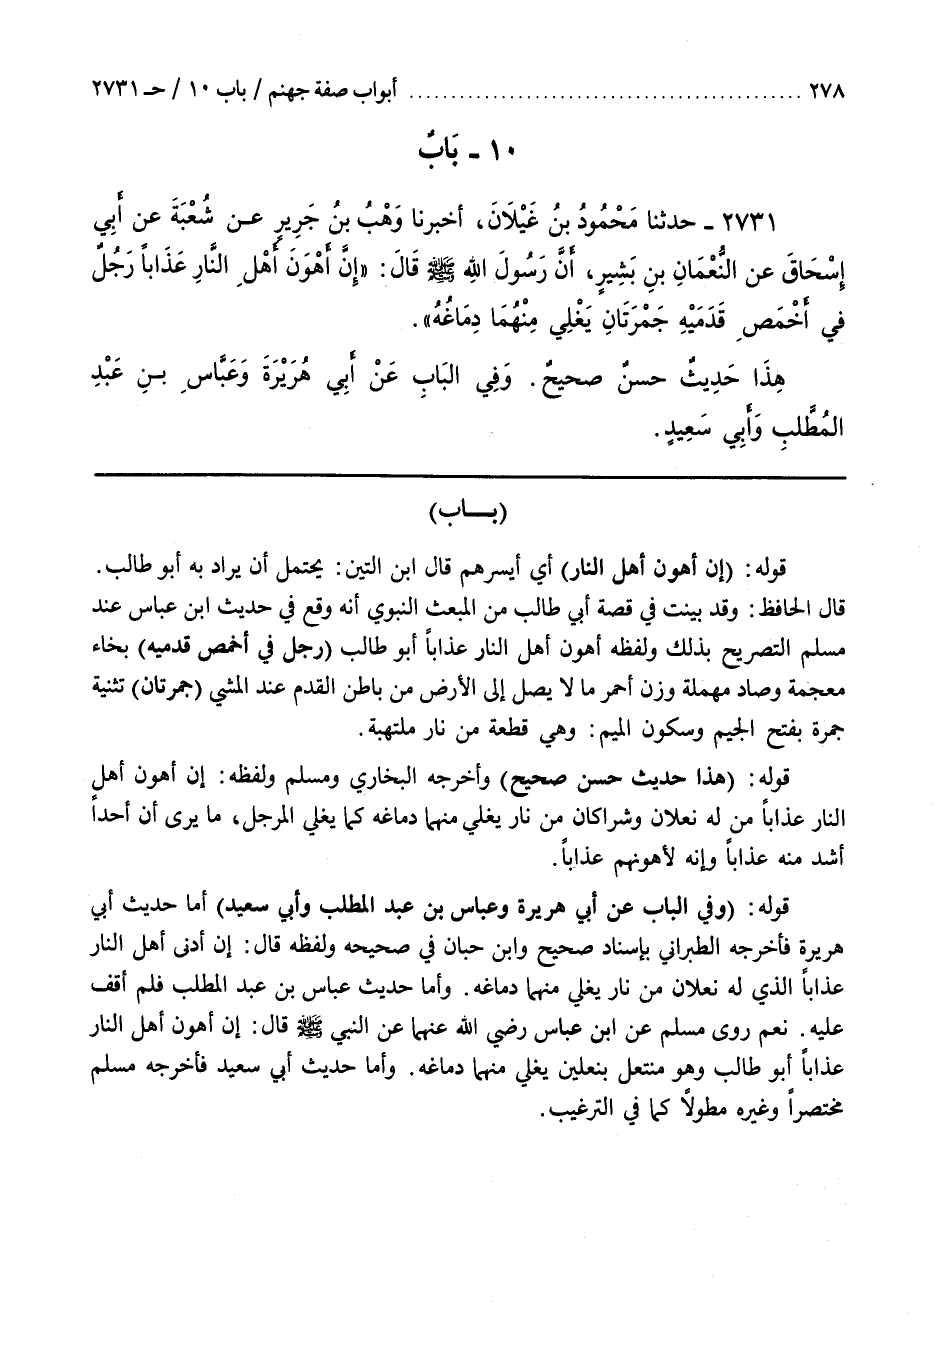 ٢٧٨ ................................................ أبواب صفة جهنم / باب ١٠ / حـ ٢٧٣١
١٠ - بَابٌ
٢٧٣١ - حدثنا مَحْمُودُ بنُ غَيْلَانَ، أخبرنا وَهْبُ بنُ جَرِيرٍ عـن شُعْبَةَ عن أَبِي
إِسْحَاقَ عن النُّعْمَانِ بنِ بَشِيرٍ، أَنَّ رَسُولَ اللهِ ﷺ قَالَ: «إِنَّ أَهْوَنَ أَهْلِ النَّارِ عَذَاباً رَجُلٌ
في أَخْمَصِ قَدَمَيْهِ جَمْرَتَانِ يَغْلِي مِنْهُمَا دِمَاغُهُ».
هِذَا حَدِيثٌ حسنٌ صحيحٌ. وَفِي البَابِ عَنْ أَبِي هُرَيْرَةَ وَعَبَّاسِ بـنِ عَبْدِ
المُطَّلبِ وَأَبِي سَعِيدٍ.
(بـــاب)
قوله: (إن أهون أهل النار) أي أيسرهم قال ابن التين: يحتمل أن يراد به أبو طالب.
قال الحافظ: وقد بينت في قصة أبي طالب من المبعث النبوي أنه وقع في حديث ابن عباس عند
مسلم التصريح بذلك ولفظه أهون أهل النار عذاباً أبو طالب (رجل في أخمص قدميه) بخاء
معجمة وصاد مهملة وزن أحمر ما لا يصل إلى الأرض من باطن القدم عند المشي (جمرتان) تثنية
جمرة بفتح الجيم وسكون الميم: وهي قطعة من نار ملتهبة.
قوله: (هذا حديث حسن صحيح) وأخرجه البخاري ومسلم ولفظه: إن أهون أهل
النار عذاباً من له نعلان وشراكان من نار يغلي منهما دماغه كما يغلي المرجل، ما يرى أن أحداً
أشد منه عذاباً وإنه لأهونهم عذاباً.
قوله: (وفي الباب عن أبي هريرة وعباس بن عبد المطلب وأبي سعيد) أما حديث أبي
هريرة فأخرجه الطبراني بإسناد صحيح وابن حبان في صحيحه ولفظه قال: إن أدنى أهل النار
عذاباً الذي له نعلان من نار يغلي منهما دماغه. وأما حديث عباس بن عبد المطلب فلم أقف
عليه. نعم روى مسلم عن ابن عباس رضي الله عنهما عن النبي ﷺ قال: إن أهون أهل النار
عذاباً أبو طالب وهو منتعل بنعلين يغلي منهما دماغه. وأما حديث أبي سعيد فأخرجه مسلم
مختصراً وغيره مطولاً كما في الترغيب.